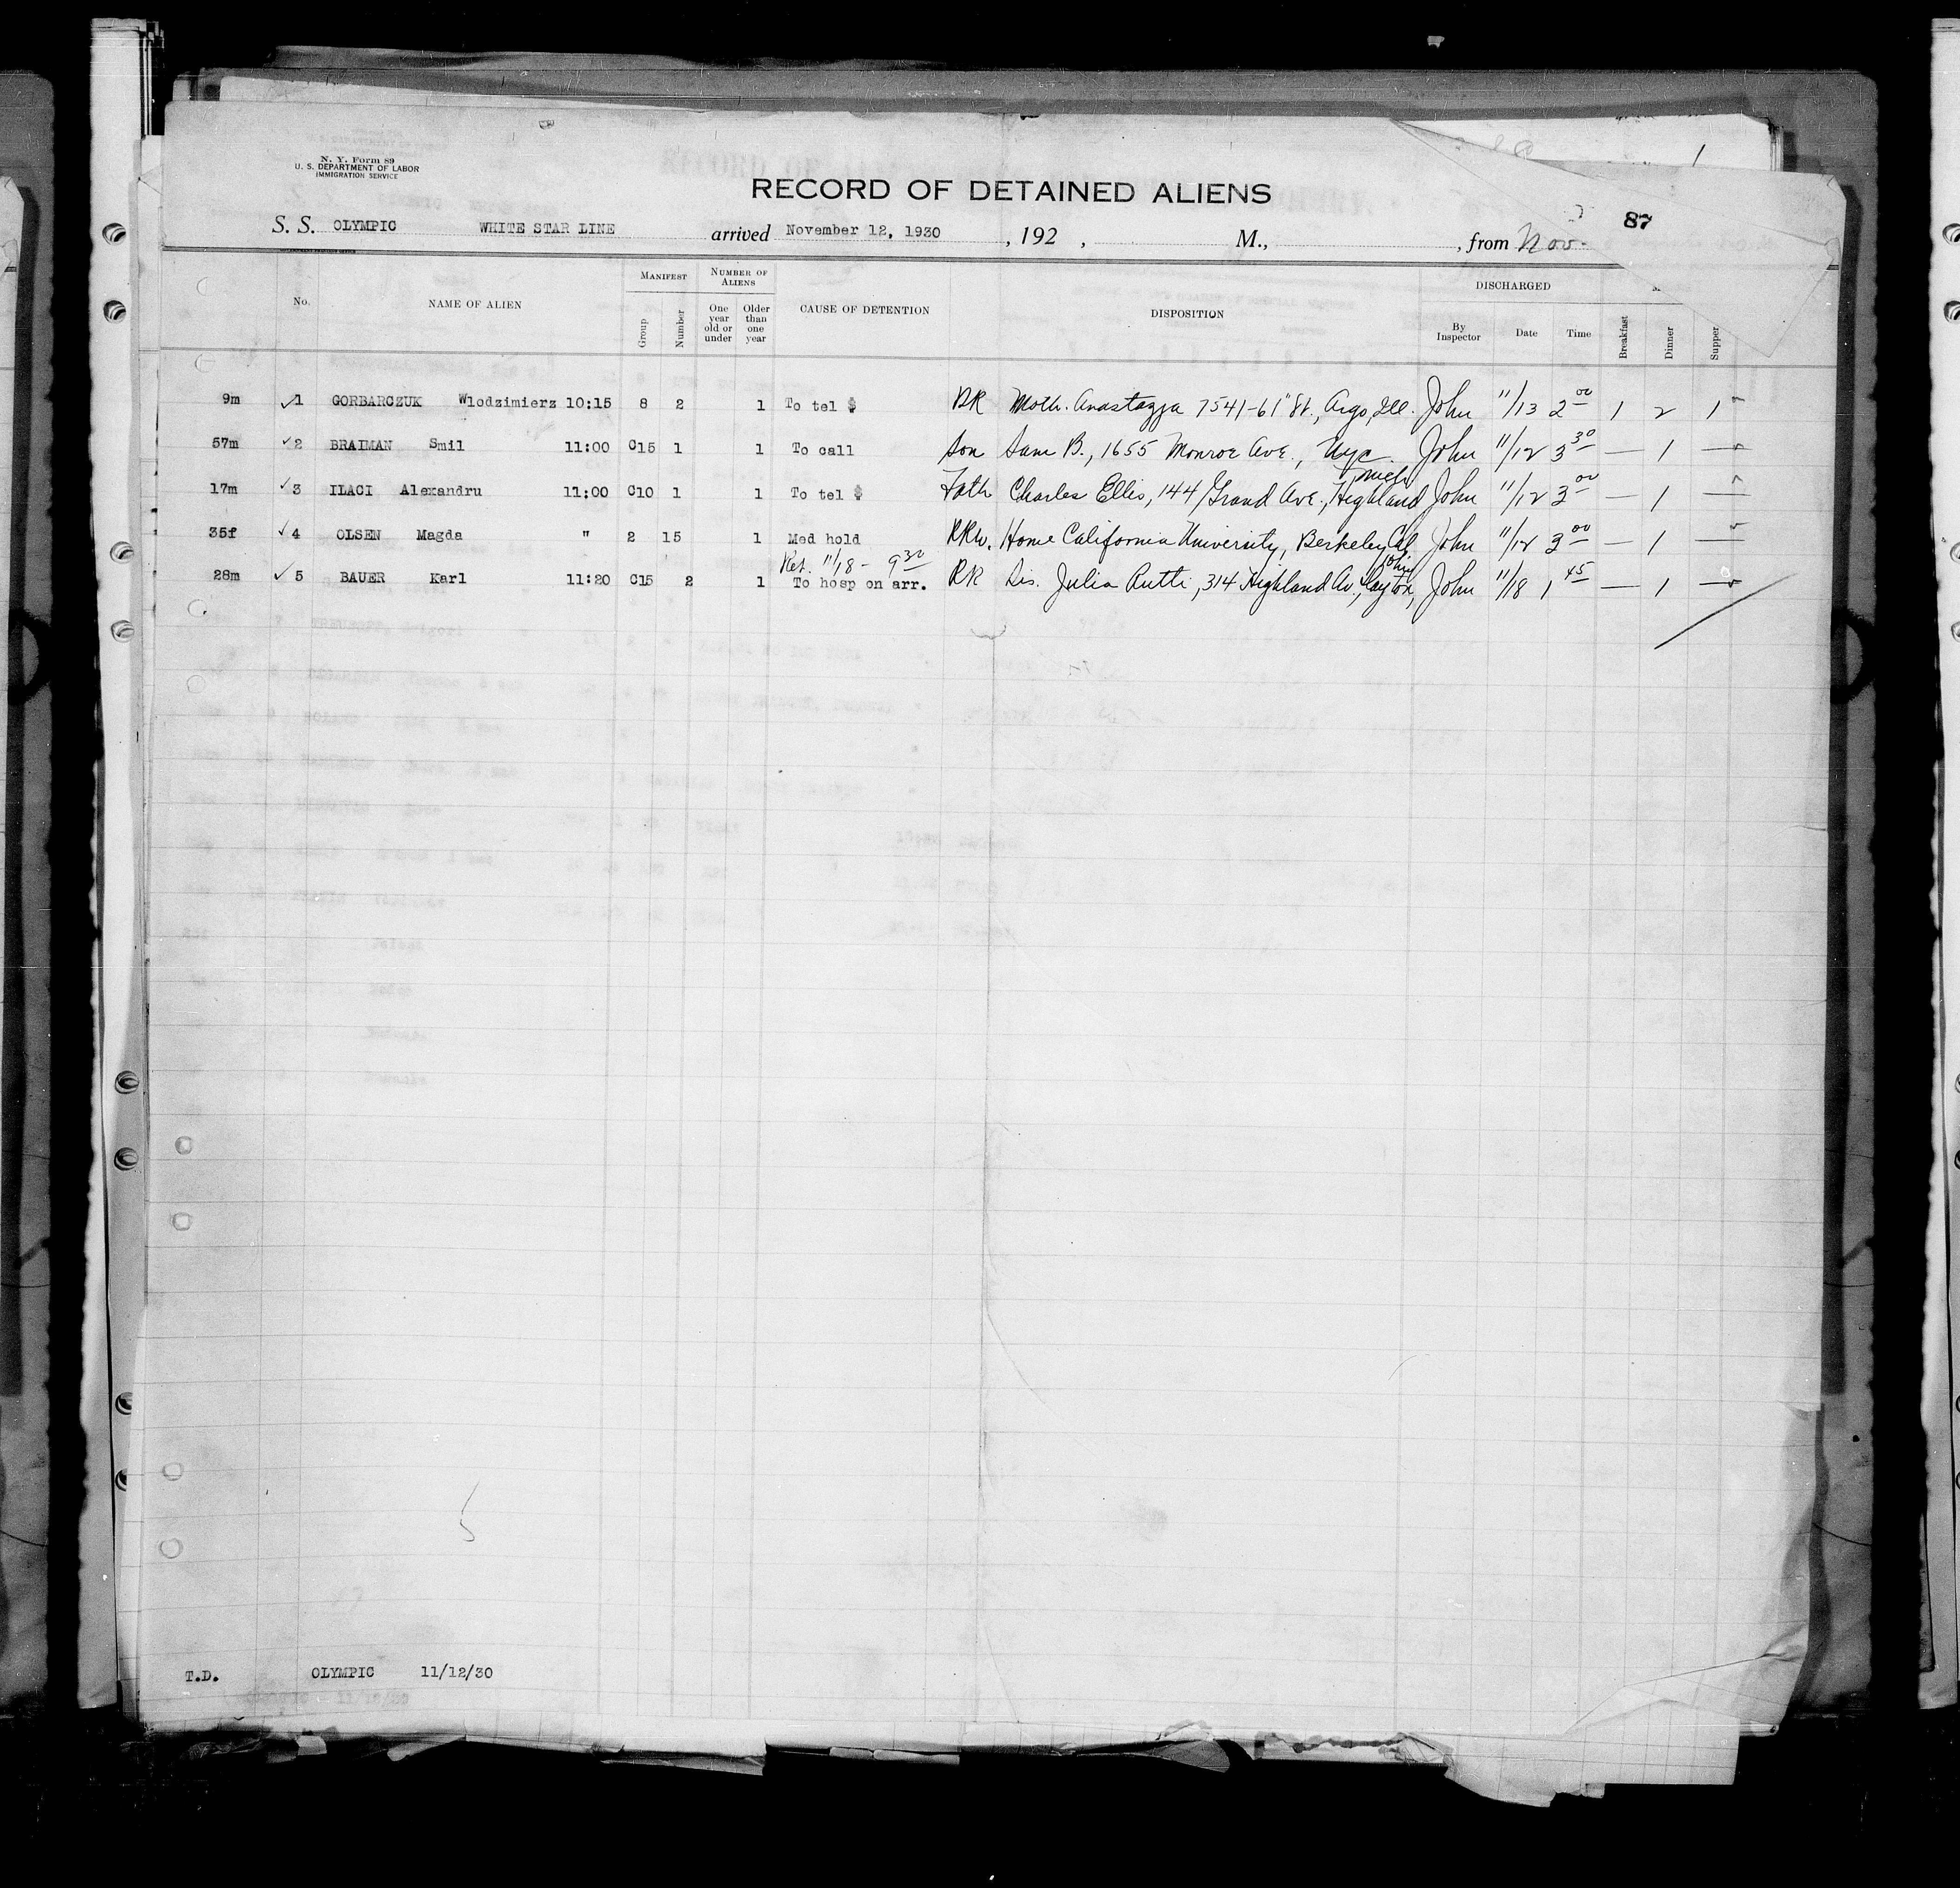 N. Y. Form 89
U. S. DEPARTMENT OF LABOR
IMMIGRATION SERVICE
RECORD OF DETAINED ALIENS
87
S. S. OLYMPIC WHITE STAR LINE arrived November 12, 1930 , 192 , M., , from Nov.
No. NAME OF ALIEN MANIFEST Group Number NUMBER OF ALIENS One year old or under Older than one year CAUSE OF DETENTION DISPOSITION DISCHARGED By Inspector Date Time Breakfast Dinner Supper
9m 1 GORBARCZUK Wlodzimierz 10:15 8 2 1 To tel $ RR Moth. Anastazja 7541-61" St., Argo, Ill. John 11/13 2 00 1 2 1
57m 2 BRAIMAN Smil 11:00 C15 1 1 To call Son Sam B., 1655 Monroe Ave., Nyc. John 11/12 3 30 — 1 —
17m 3 ILACI Alexandru 11:00 C10 1 1 To tel $ Fath Charles Ellis, 144 Grand Ave., Highland Mich John 11/12 3 00 — 1 —
35f 4 OLSEN Magda " 2 15 1 Med hold RRW. Home California University, Berkeley Cal John 11/12 3 00 — 1 —
Ret. 11/18 - 9 30
28m 5 BAUER Karl 11:20 C15 2 1 To hosp on arr. RR Sis. Julia Rutti, 314 Highland Av., Dayton, Ohio John 11/18 1 45 — 1 —
5
T.D. OLYMPIC 11/12/30